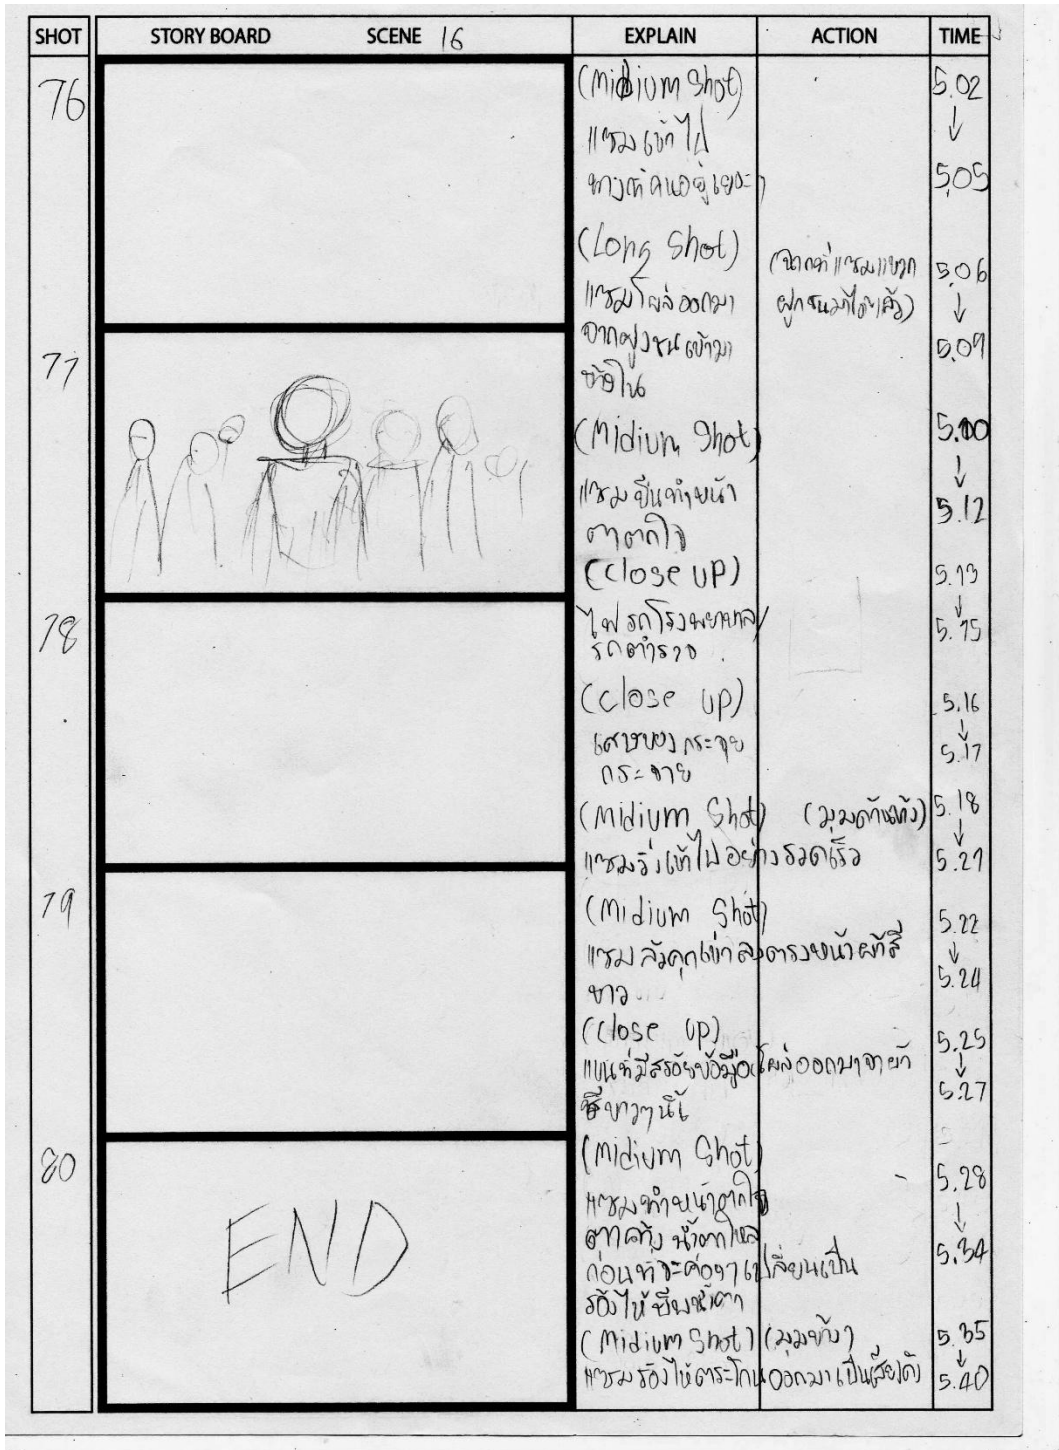 SHOT STORY BOARD SCENE 16 EXPLAIN ACTION TIME
76
(Midium Shot)
แซมเข้าไป
ทางที่คนอยู่เยอะๆ
5.02
↓
5.05
(Long Shot)
แซมโผล่ออกมา
จากฝูงชนเข้ามา
ข้างใน
(ฉากที่แซมแหวก
ฝูกชนมาได้แล้ว)
5.06
↓
5.09
77
(Midium Shot)
แซมยืนทำหน้า
ตาตกใจ
5.10
↓
5.12
(Close UP)
ไฟรถโรงพยาบาล/
รถตำรวจ
5.13
↓
5.15
78
(Close UP)
เศษของกระจุย
กระจาย
5.16
↓
5.17
(Midium Shot) (มุมด้านข้าง)
แซมวิ่งเข้าไปอย่างรวดเร็ว
5.18
↓
5.21
79
(Midium Shot)
แซมล้วคุกเข่าลงตรงหน้าผ้าสี
ขาว
5.22
↓
5.24
(Close UP)
แขนที่มีสร้อยข้อมือโผล่ออกมา
5.25
↓
5.27
80
END
(Midium Shot)
แซมทำหน้าตกใจ
ตาค้าง น้ำตาไหล
ก่อนที่จะค่อยๆเปลี่ยนเป็น
ร้องไห้
5.28
↓
5.34
(Midium Shot) (มุมข้าง)
แซมร้องไห้ตระโกนออกมาเป็นเสียงดัง
5.35
↓
5.40